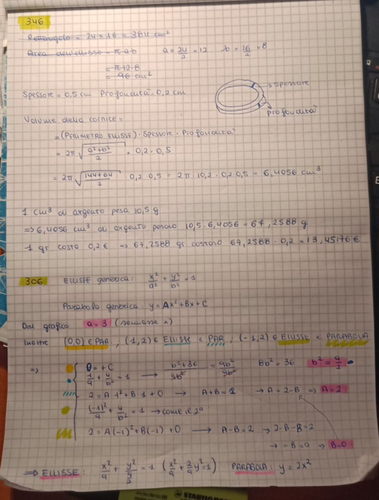 346
Rettangolo = 24 × 16 = 384 cm²
Area dell'ellisse = π·ab    a = 24/2 = 12    b = 16/2 = 8
= π·12·8
= cm²
Spessore = 0,5 cm  Profondità = 0,2 cm
Spessore
Profondità
Volume della cornice =
= (PERIMETRO ELLISSE) · Spessore · Profondità
= 2π √((a²+b²)/2) · 0,2 · 0,5
= 2π √((144+64)/2) · 0,2 · 0,5 = 2π · 10,2 · 0,2 · 0,5 = 6,4056 cm³
1 cm³ di argento pesa 10,5 g
⇒ 6,4056 cm³ di argento pesano 10,5 · 6,4056 = 67,2588 g
1 gr costa 0,2 € ⇒ 67,2588 gr costano 67,2588 · 0,2 = 13,45176 €
306
Ellisse generica: x²/a² + y²/b² = 1
Parabola generica: y = Ax² + Bx + C
Dal grafico a = 3 (semiasse)
Inoltre (0,0) ∈ PAR, (1,2) ∈ ELLISSE e PAR, (-1,2) ∈ ELLISSE e PARABOLA
⇒ 0 = + C
1/9 + 4/b² = 1 → (b²+36)/9b² = 9b²/9b²    8b² = 36    b² = 9/2
2 = A·1² + B·1 + 0 → A + B = 2 → A = 2 - B → A = 2
(-1)²/9 + 4/b² = 1 → come il 2°
2 = A(-1)² + B(-1) + 0 → A - B = 2 → 2 - B - B = 2
→ -B = 0 → B = 0
⇒ ELLISSE: x²/9 + y²/(9/2) = 1 (x²/9 + 2/9 y² = 1)  PARABOLA: y = 2x²